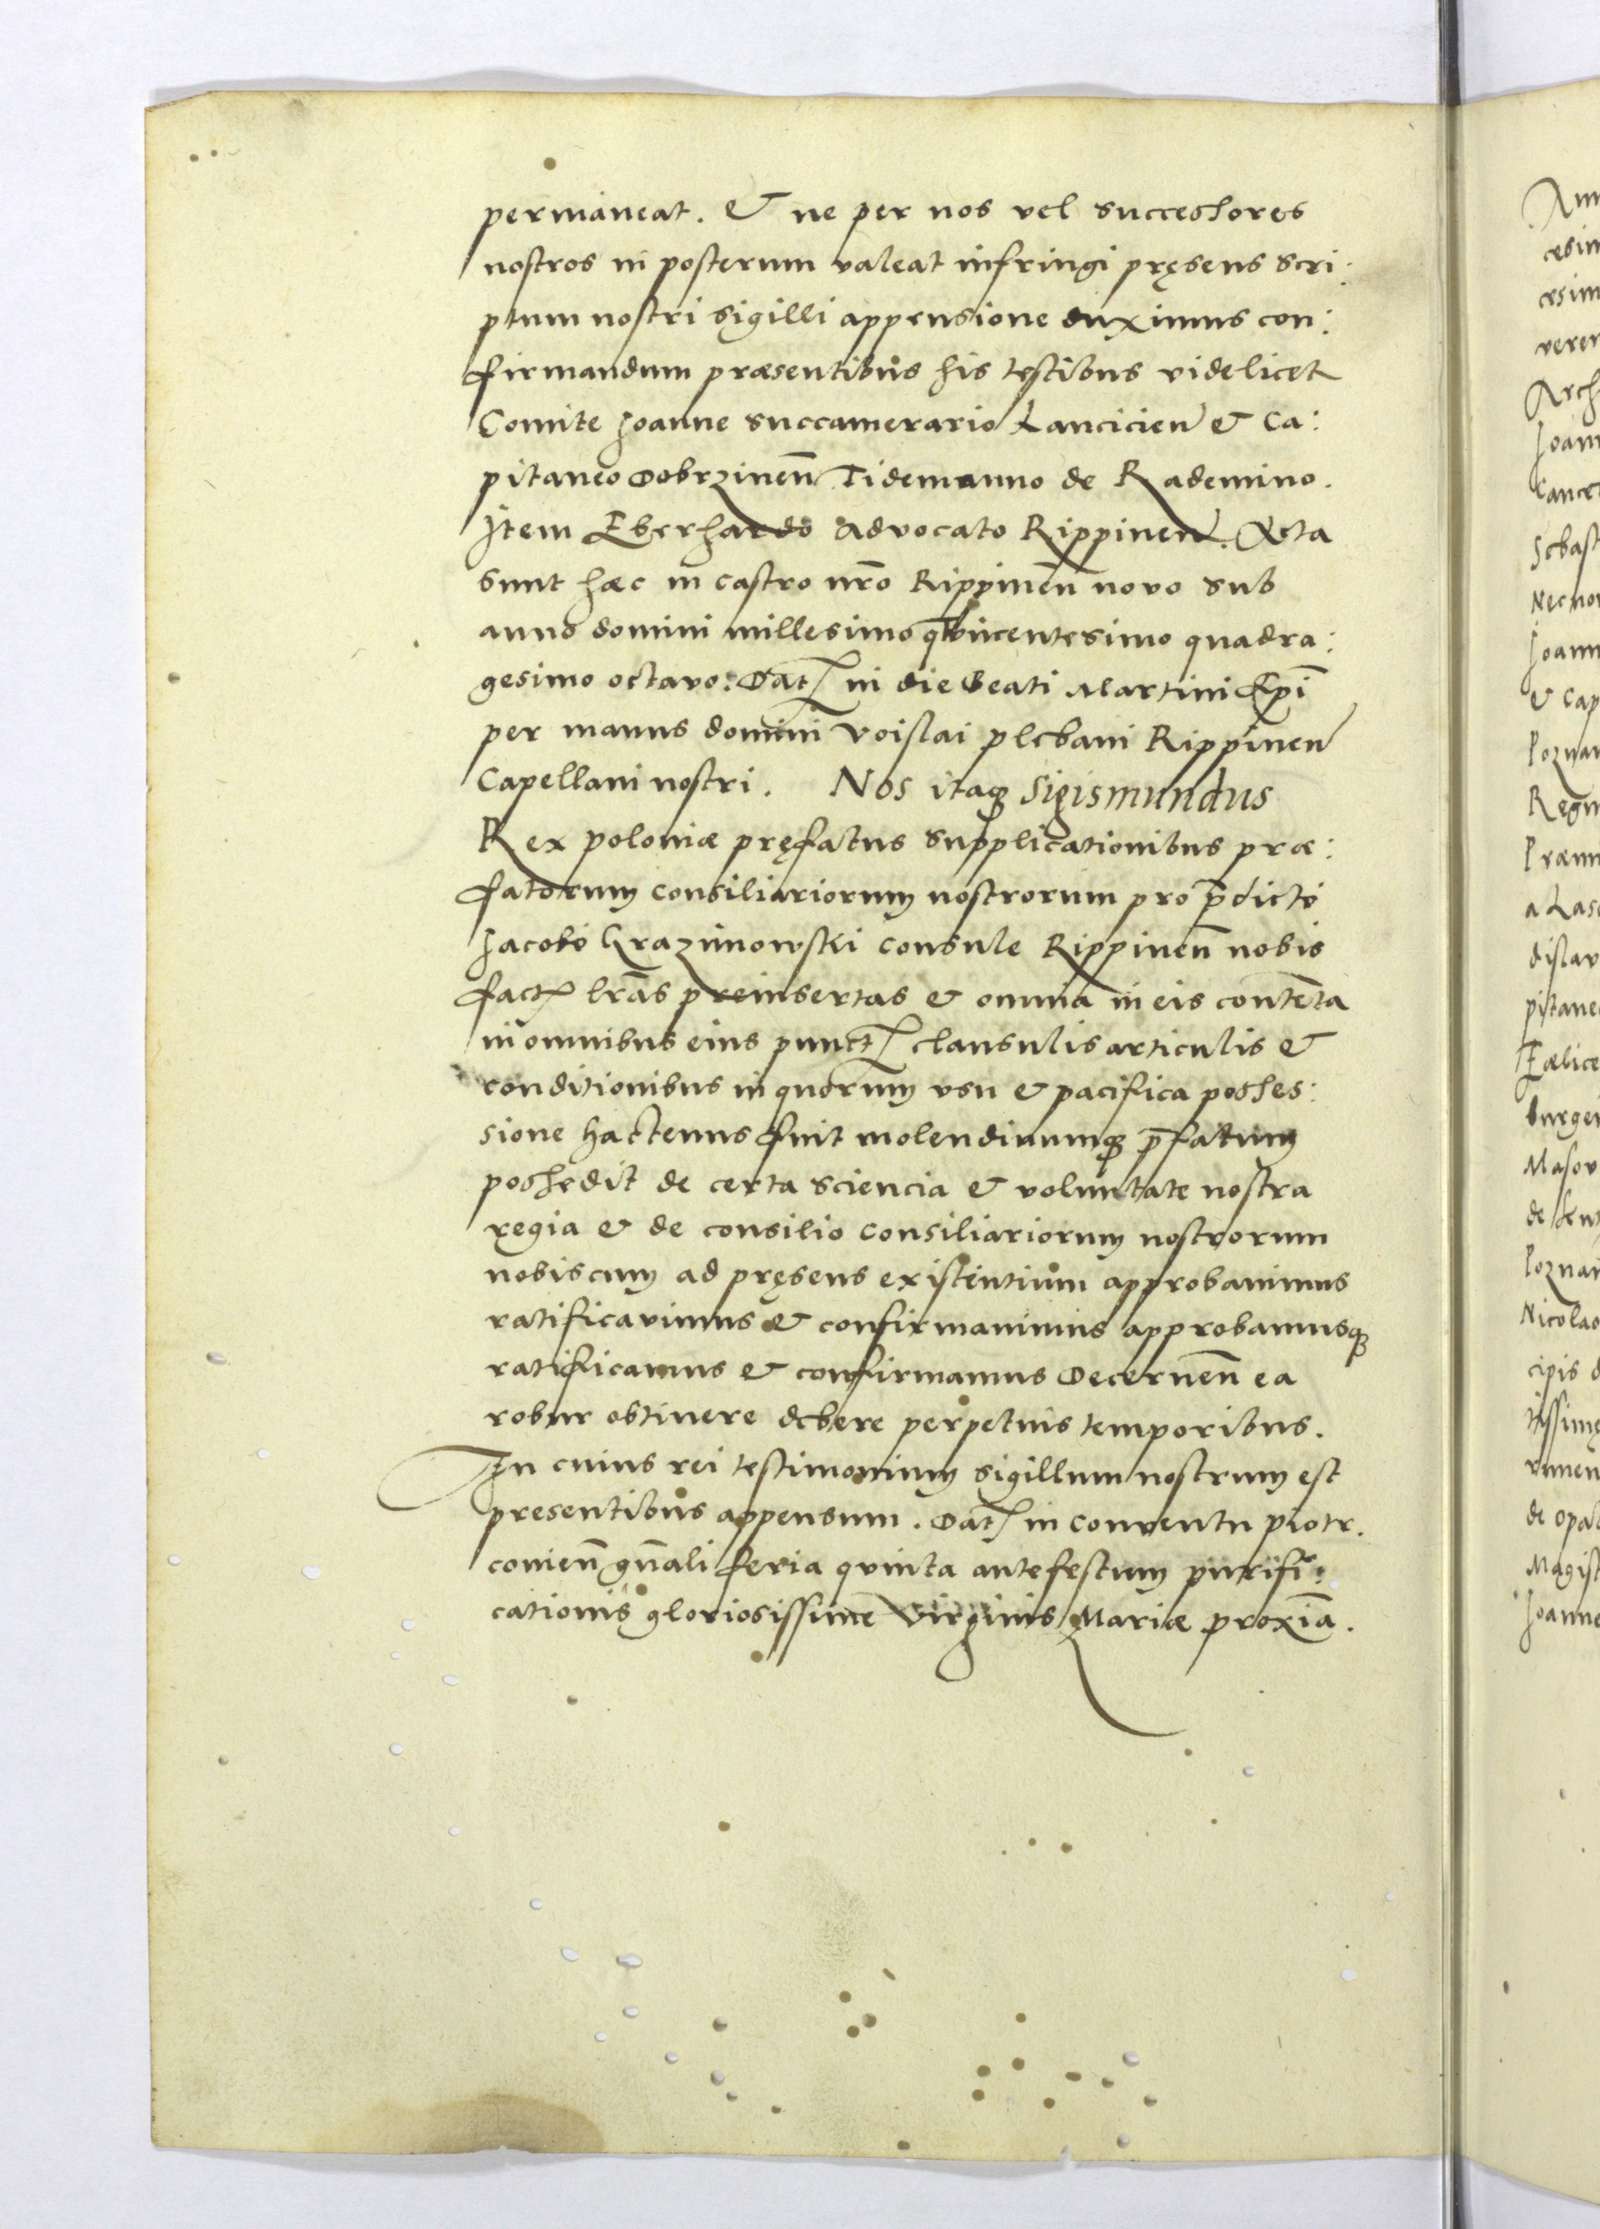 permaneat. & ne per nos vel successores
nostros in posterum valeat infringi pręsens scri:
ptum nostri sigilli appensione duximus con:
firmandum præsentibus his testibus videlicet
Comite Joanne succamerario Lancicien & Ca:
pitaneo Dobrzinen̄ Tidemanno de Rademino.
Item Eberhardo Advocato Rippinen. Acta
sunt hæc in castro nr̄o Rippinen̄ novo sub
anno domini millesimo quincentesimo quadra:
gesimo octavo: Dat in die Beati Martini Epī
per manus domini Voislai plebani Rippinen
Capellani nostri. Nos itaq Sigismundus
Rex poloniæ pręfatus supplicationibus præ:
fatorum consiliariorum nostrorum pro p̄dicto
Jacobo Grazimowski consule Rippinen̄ nobis
fact lr̄as preinsertas & omnia in eis contēta
in omnibus eius punct clausulis articulis &
conditionibus in quorum usu & pacifica posses:
sione hactenus fuit molendinumq p̄fatum
possedit de certa sciencia & voluntate nostra
regia & de consilio consiliariorum nostrorum
nobiscum ad pręsens existentium approbavimus
ratificavimus & confirmavimus approbamusq
ratificamus & confirmamus Decernen̄ ea
robur obtinere debere perpetuis temporibus.
In cuius rei testimonium sigillum nostrum est
presentibus appensum. Dat in conventu piotr.
covien̄ gn̄ali feria quinta ante festum purifi:
cationis gloriosissime Virginis Mariæ proxīa.